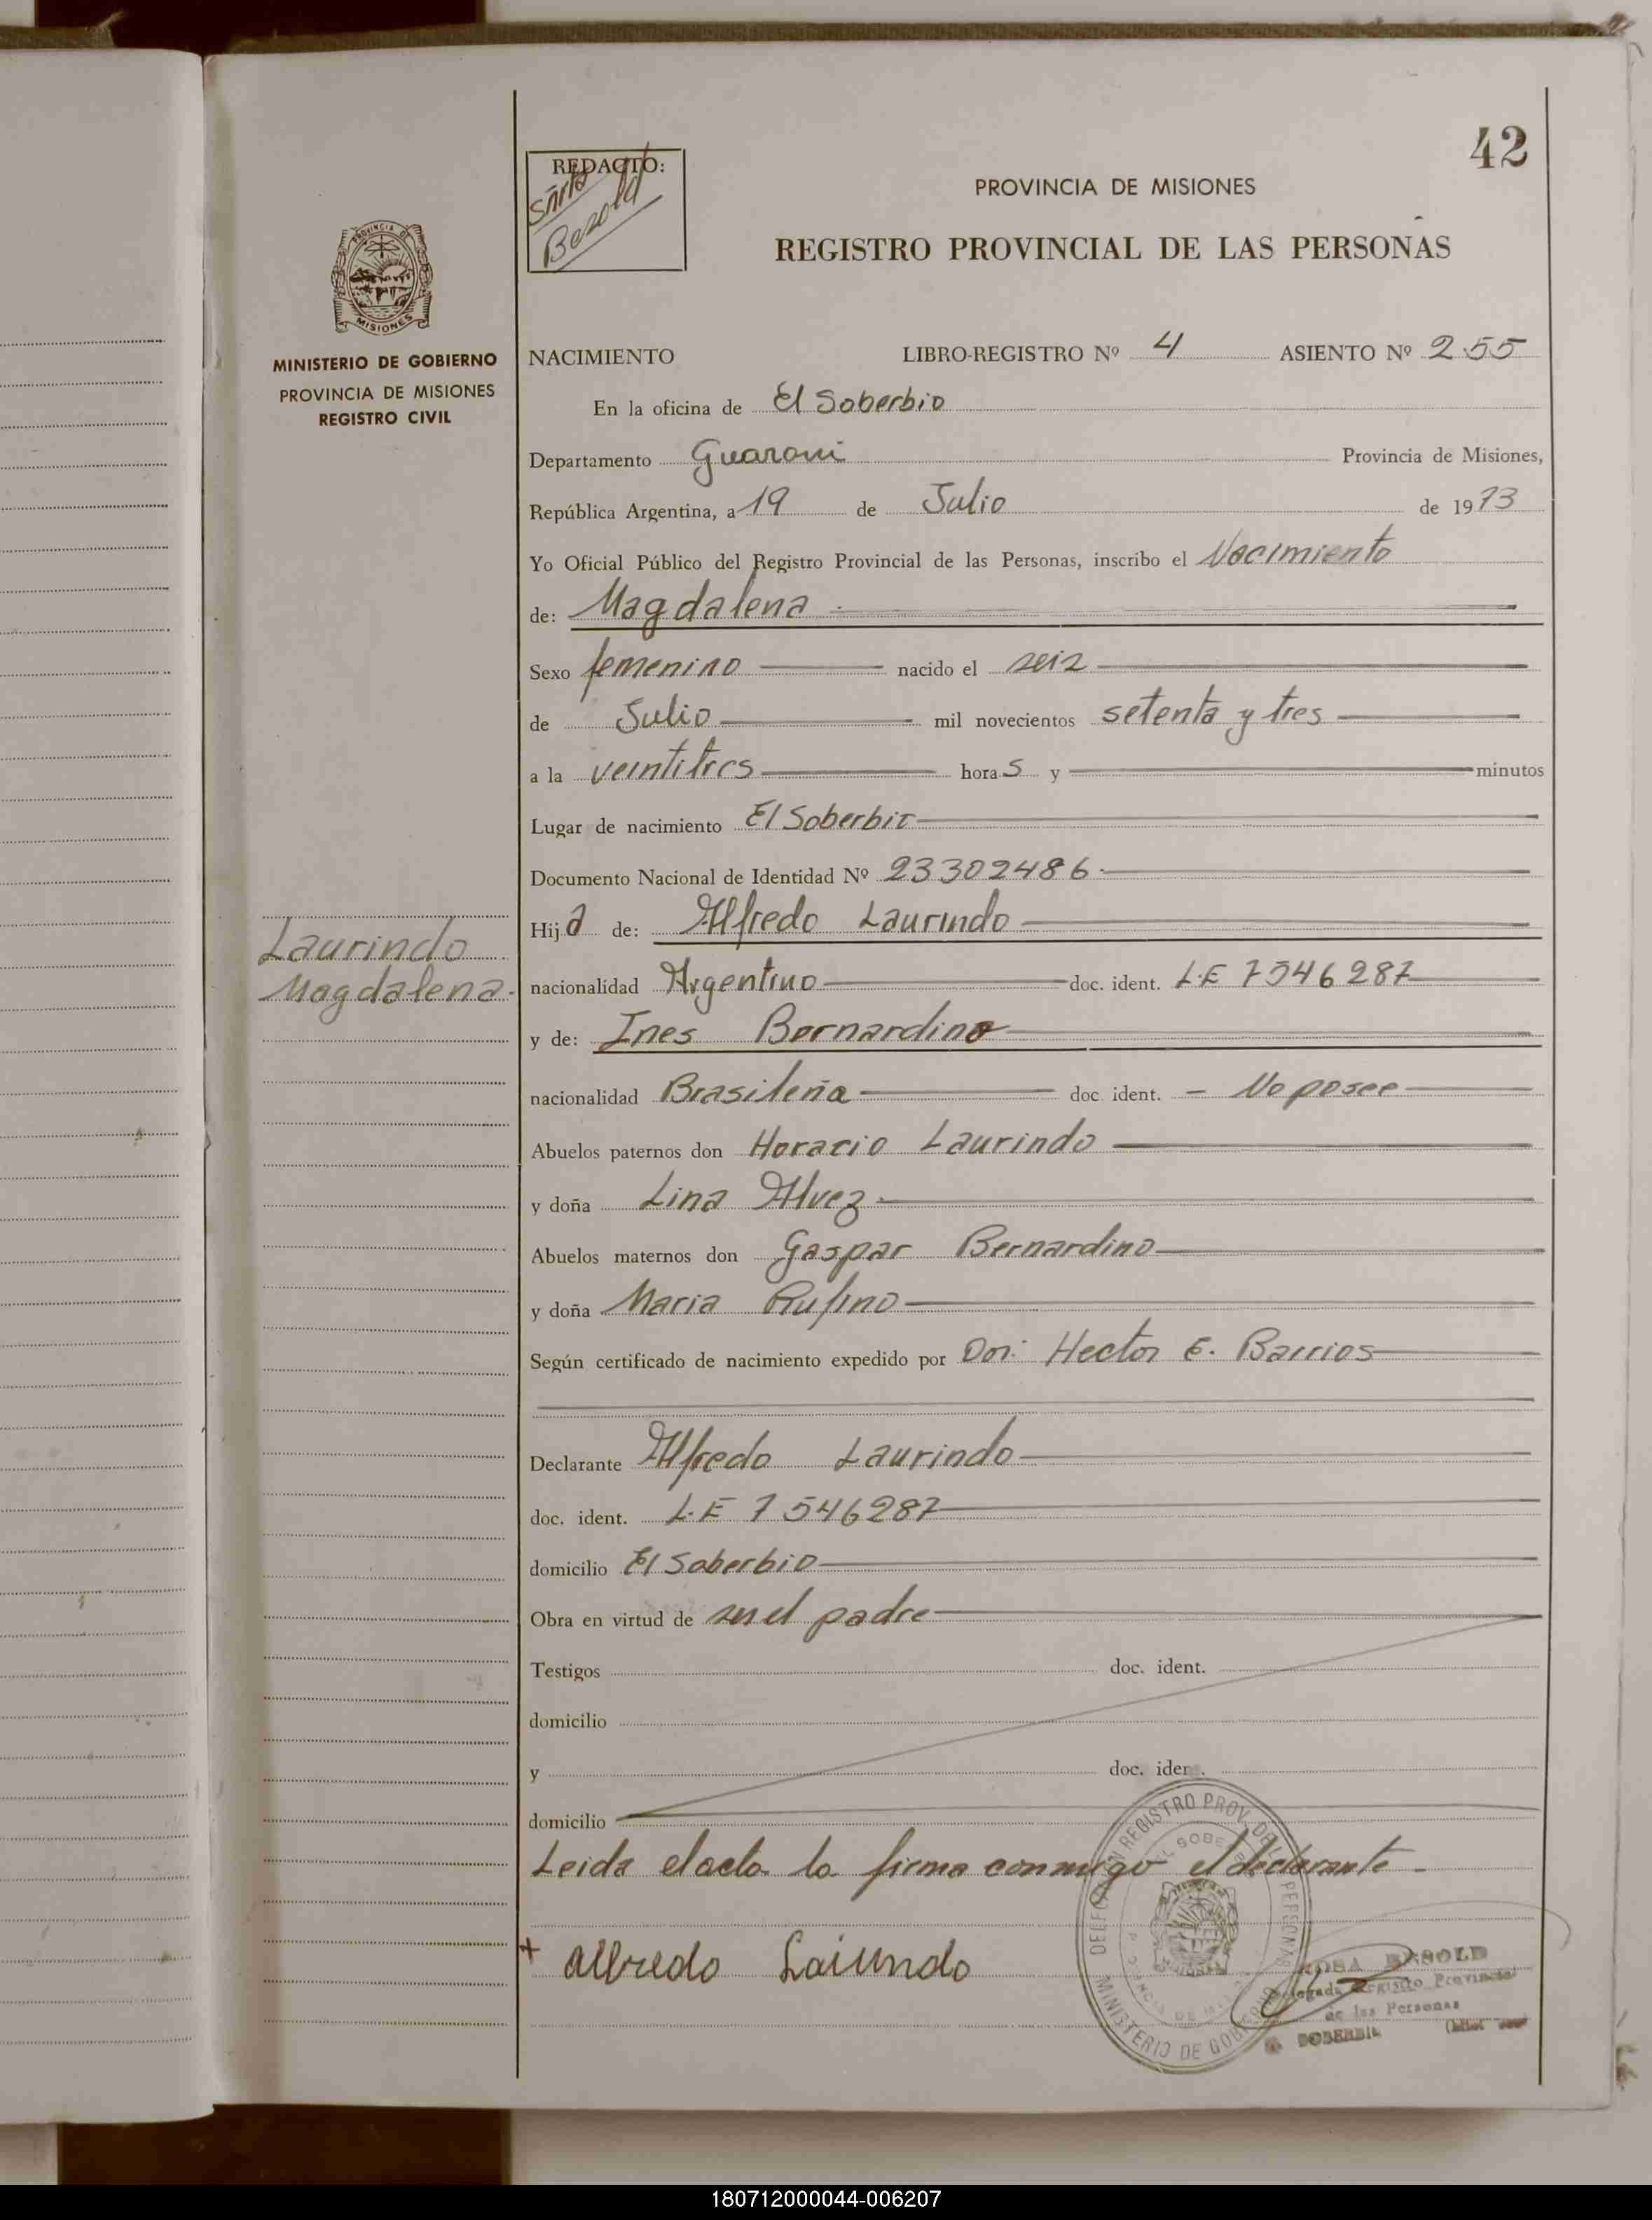 42
REDACTO:
Bezold
PROVINCIA DE MISIONES
REGISTRO PROVINCIAL DE LAS PERSONAS
PROVINCIA DE
MISIONES
MINISTERIO DE GOBIERNO
PROVINCIA DE MISIONES
REGISTRO CIVIL
NACIMIENTO LIBRO-REGISTRO Nº 4 ASIENTO Nº 255
En la oficina de El Soberbio
Departamento Guarani Provincia de Misiones,
República Argentina, a 19 de Julio de 1973
Yo Oficial Público del Registro Provincial de las Personas, inscribo el Nacimiento
de: Magdalena
Sexo femenino nacido el seis
de Julio mil novecientos setenta y tres
a la veintitres horas y minutos
Lugar de nacimiento El Soberbio
Documento Nacional de Identidad Nº 23302486
Hija de: Alfredo Laurindo
Laurindo
Magdalena.
nacionalidad Argentino doc. ident. L.E 7546287
y de: Ines Bernardino
nacionalidad Brasileña doc. ident. - No posee
Abuelos paternos don Horacio Laurindo
y doña Lina Alvez
Abuelos maternos don Gaspar Bernardino
y doña Maria Rufino
Según certificado de nacimiento expedido por Don: Hector E. Barrios
Declarante Alfredo Laurindo
doc. ident. L.E 7546287
domicilio El Soberbio
Obra en virtud de ser el padre
Testigos doc. ident.
domicilio
y doc. iden.
domicilio
Leida el acta la firma conmigo el declarante-
+ alfredo Laiundo
REGISTRO PROV. DE L PERSONAS
MINISTERIO DE GOBIERNO
ROSA BEZOLD
Delegada Registro Provincial
de las Personas
SOBERBIO
180712000044-006207